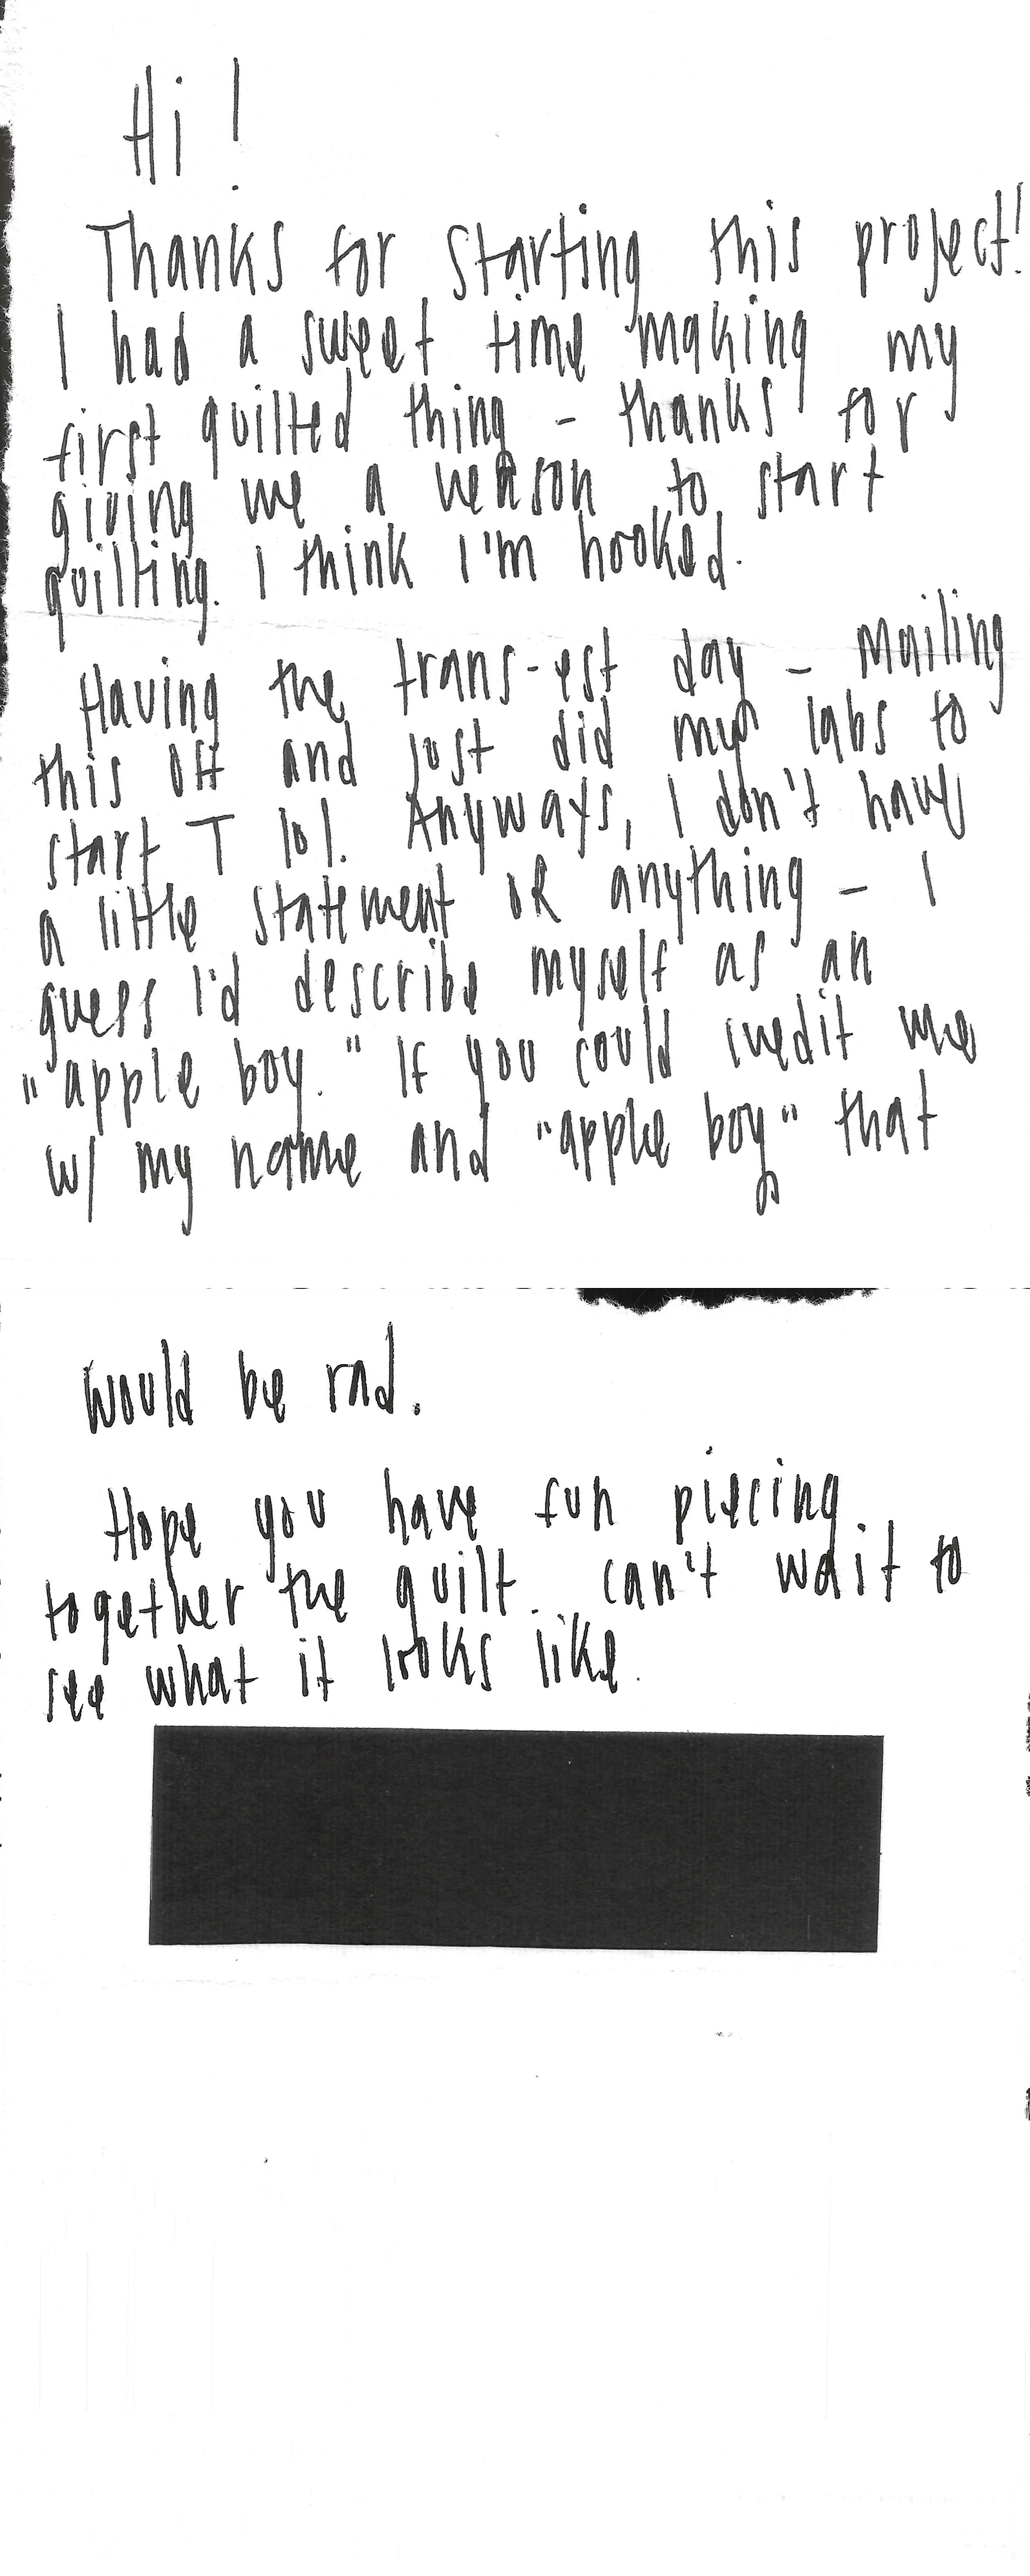 Hi !
Thanks for starting this project!
I had a sweet time making my
first quilted thing - thanks for
giving me a reason to start
quilting. I think I'm hooked.
Having the trans-est day - mailing
this off and just did my labs to
start T lol. Anyways, I don't have
a little statement or anything - I
guess I'd describe myself as an
"apple boy." If you could credit me
w/ my name and "apple boy" that
would be rad.
Hope you have fun piecing
together the quilt. can't wait to
see what it looks like.